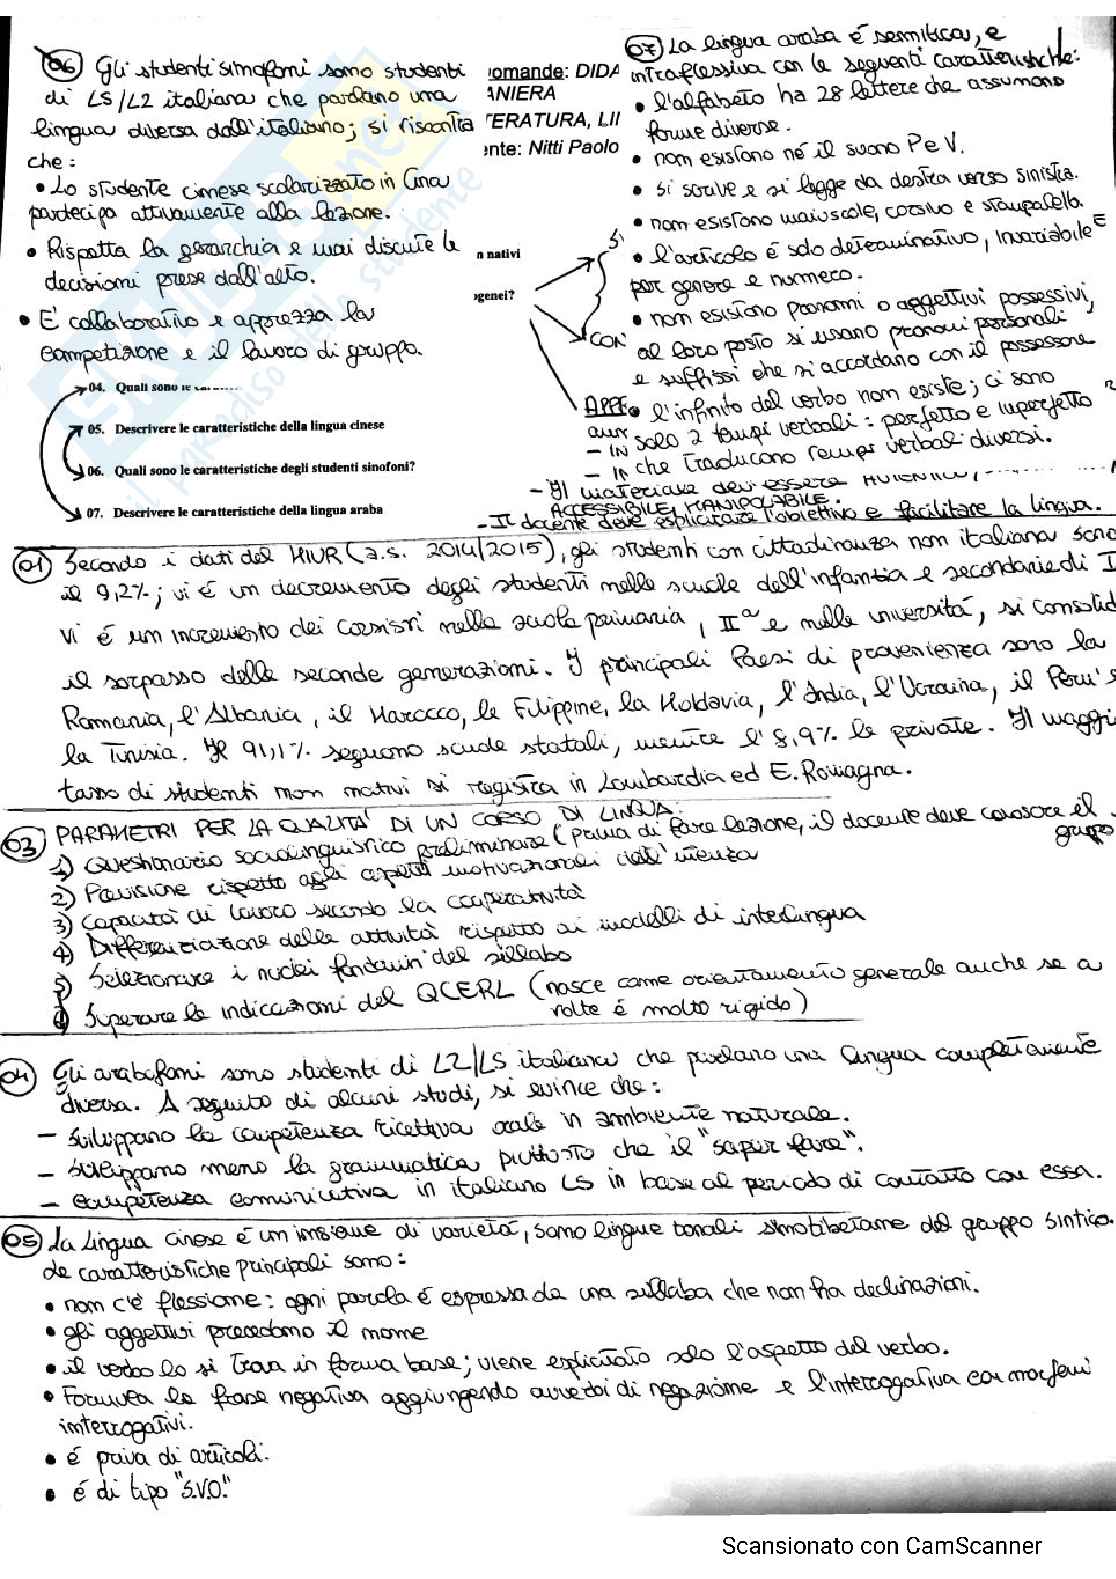 06 Gli studenti sinofoni sono studenti
di LS/L2 italiana che parlano una
lingua diversa dall'italiano; si riscontra
che:
• Lo studente cinese scolarizzato in Cina
partecipa attivamente alla lezione.
• Rispetta la gerarchia e mai discute le
decisioni prese dall'alto.
• E' collaborativo e apprezza la
competizione e il lavoro di gruppo.
omande: DIDA
ANIERA
TERATURA, LII
nte: Nitti Paolo
n nativi
ogenei?
07 La lingua araba é semitica, e
intraflessiva con le seguenti caratteristiche:
• l'alfabeto ha 28 lettere che assumono
forme diverse.
• non esistono né il suono P e V.
• si scrive e si legge da destra verso sinistra.
• non esistono maiuscole, corsivo e stampatello
• l'articolo é solo determinativo, invariabile E
per genere e numero.
• non esistono pronomi o aggettivi possessivi,
al loro posto si usano pronomi personali
e suffissi che si accordano con il possessore
• l'infinito del verbo non esiste; ci sono
solo 2 tempi verbali: perfetto e imperfetto
che traducono tempi verbali diversi.
04. Quali sono le
05. Descrivere le caratteristiche della lingua cinese
06. Quali sono le caratteristiche degli studenti sinofoni?
07. Descrivere le caratteristiche della lingua araba
- Il materiale dev'essere
ACCESSIBILE, MANIPOLABILE.
- Il docente deve esplicitare l'obiettivo e facilitare la lingua.
01 Secondo i dati del MIUR (a.s. 2014/2015), gli studenti con cittadinanza non italiana sono
il 9,2%; vi é un decremento degli studenti nelle scuole dell'infanzia e secondarie di I
vi é un incremento dei corsisti nella scuola primaria, IIª e nelle università, si consolida
il sorpasso delle seconde generazioni. I principali Paesi di provenienza sono la
Romania, l'Albania, il Marocco, le Filippine, la Moldavia, l'India, l'Ucraina, il Perù e
la Tunisia. Il 91,1% seguono scuole statali, mentre l'8,9% le private. Il maggi
tasso di studenti non nativi si registra in Lombardia ed E. Romagna.
03 PARAMETRI PER LA QUALITA' DI UN CORSO DI LINGUA:
1) Questionario sociolinguistico preliminare (prima di fare lezione, il docente deve conoscere il
gruppo
2) Previsione rispetto agli aspetti motivazionali dell'utenza
3) Capacità di lavoro secondo la cooperatività
4) Differenziazione delle attività rispetto ai modelli di interlingua
5) Selezionare i nuclei fondam. del sillabo
6) Superare le indicazioni del QCERL (nasce come orientamento generale anche se a
volte é molto rigido)
04 Gli arabofoni sono studenti di L2/LS italiana che parlano una lingua completamente
diversa. A seguito di alcuni studi, si evince che:
- sviluppano la competenza ricettiva orale in ambiente naturale.
- sviluppano meno la grammatica piuttosto che il "saper fare".
- competenza comunicativa in italiano LS in base al periodo di contatto con essa.
05 La lingua cinese é un insieme di varietà, sono lingue tonali sinotibetane del gruppo sinitico.
Le caratteristiche principali sono:
• non c'é flessione: ogni parola é espressa da una sillaba che non ha declinazioni.
• gli aggettivi precedono il nome
• il verbo lo si trova in forma base; viene esplicitato solo l'aspetto del verbo.
• Formula le frase negativa aggiungendo avverbi di negazione e l'interrogativa con morfemi
interrogativi.
• é priva di articoli.
• é di tipo "S.V.O."
Scansionato con CamScanner